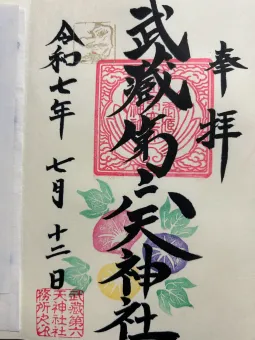 奉拝
武蔵第六天神社
令和七年 七月 十二日
武蔵第六
天神社社
務所之印